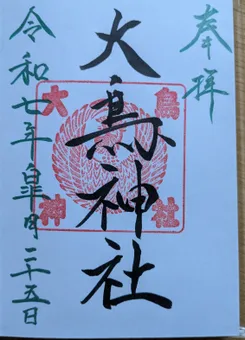 奉拝
大鳥神社
令和七年皐月二十五日
大鳥
神社